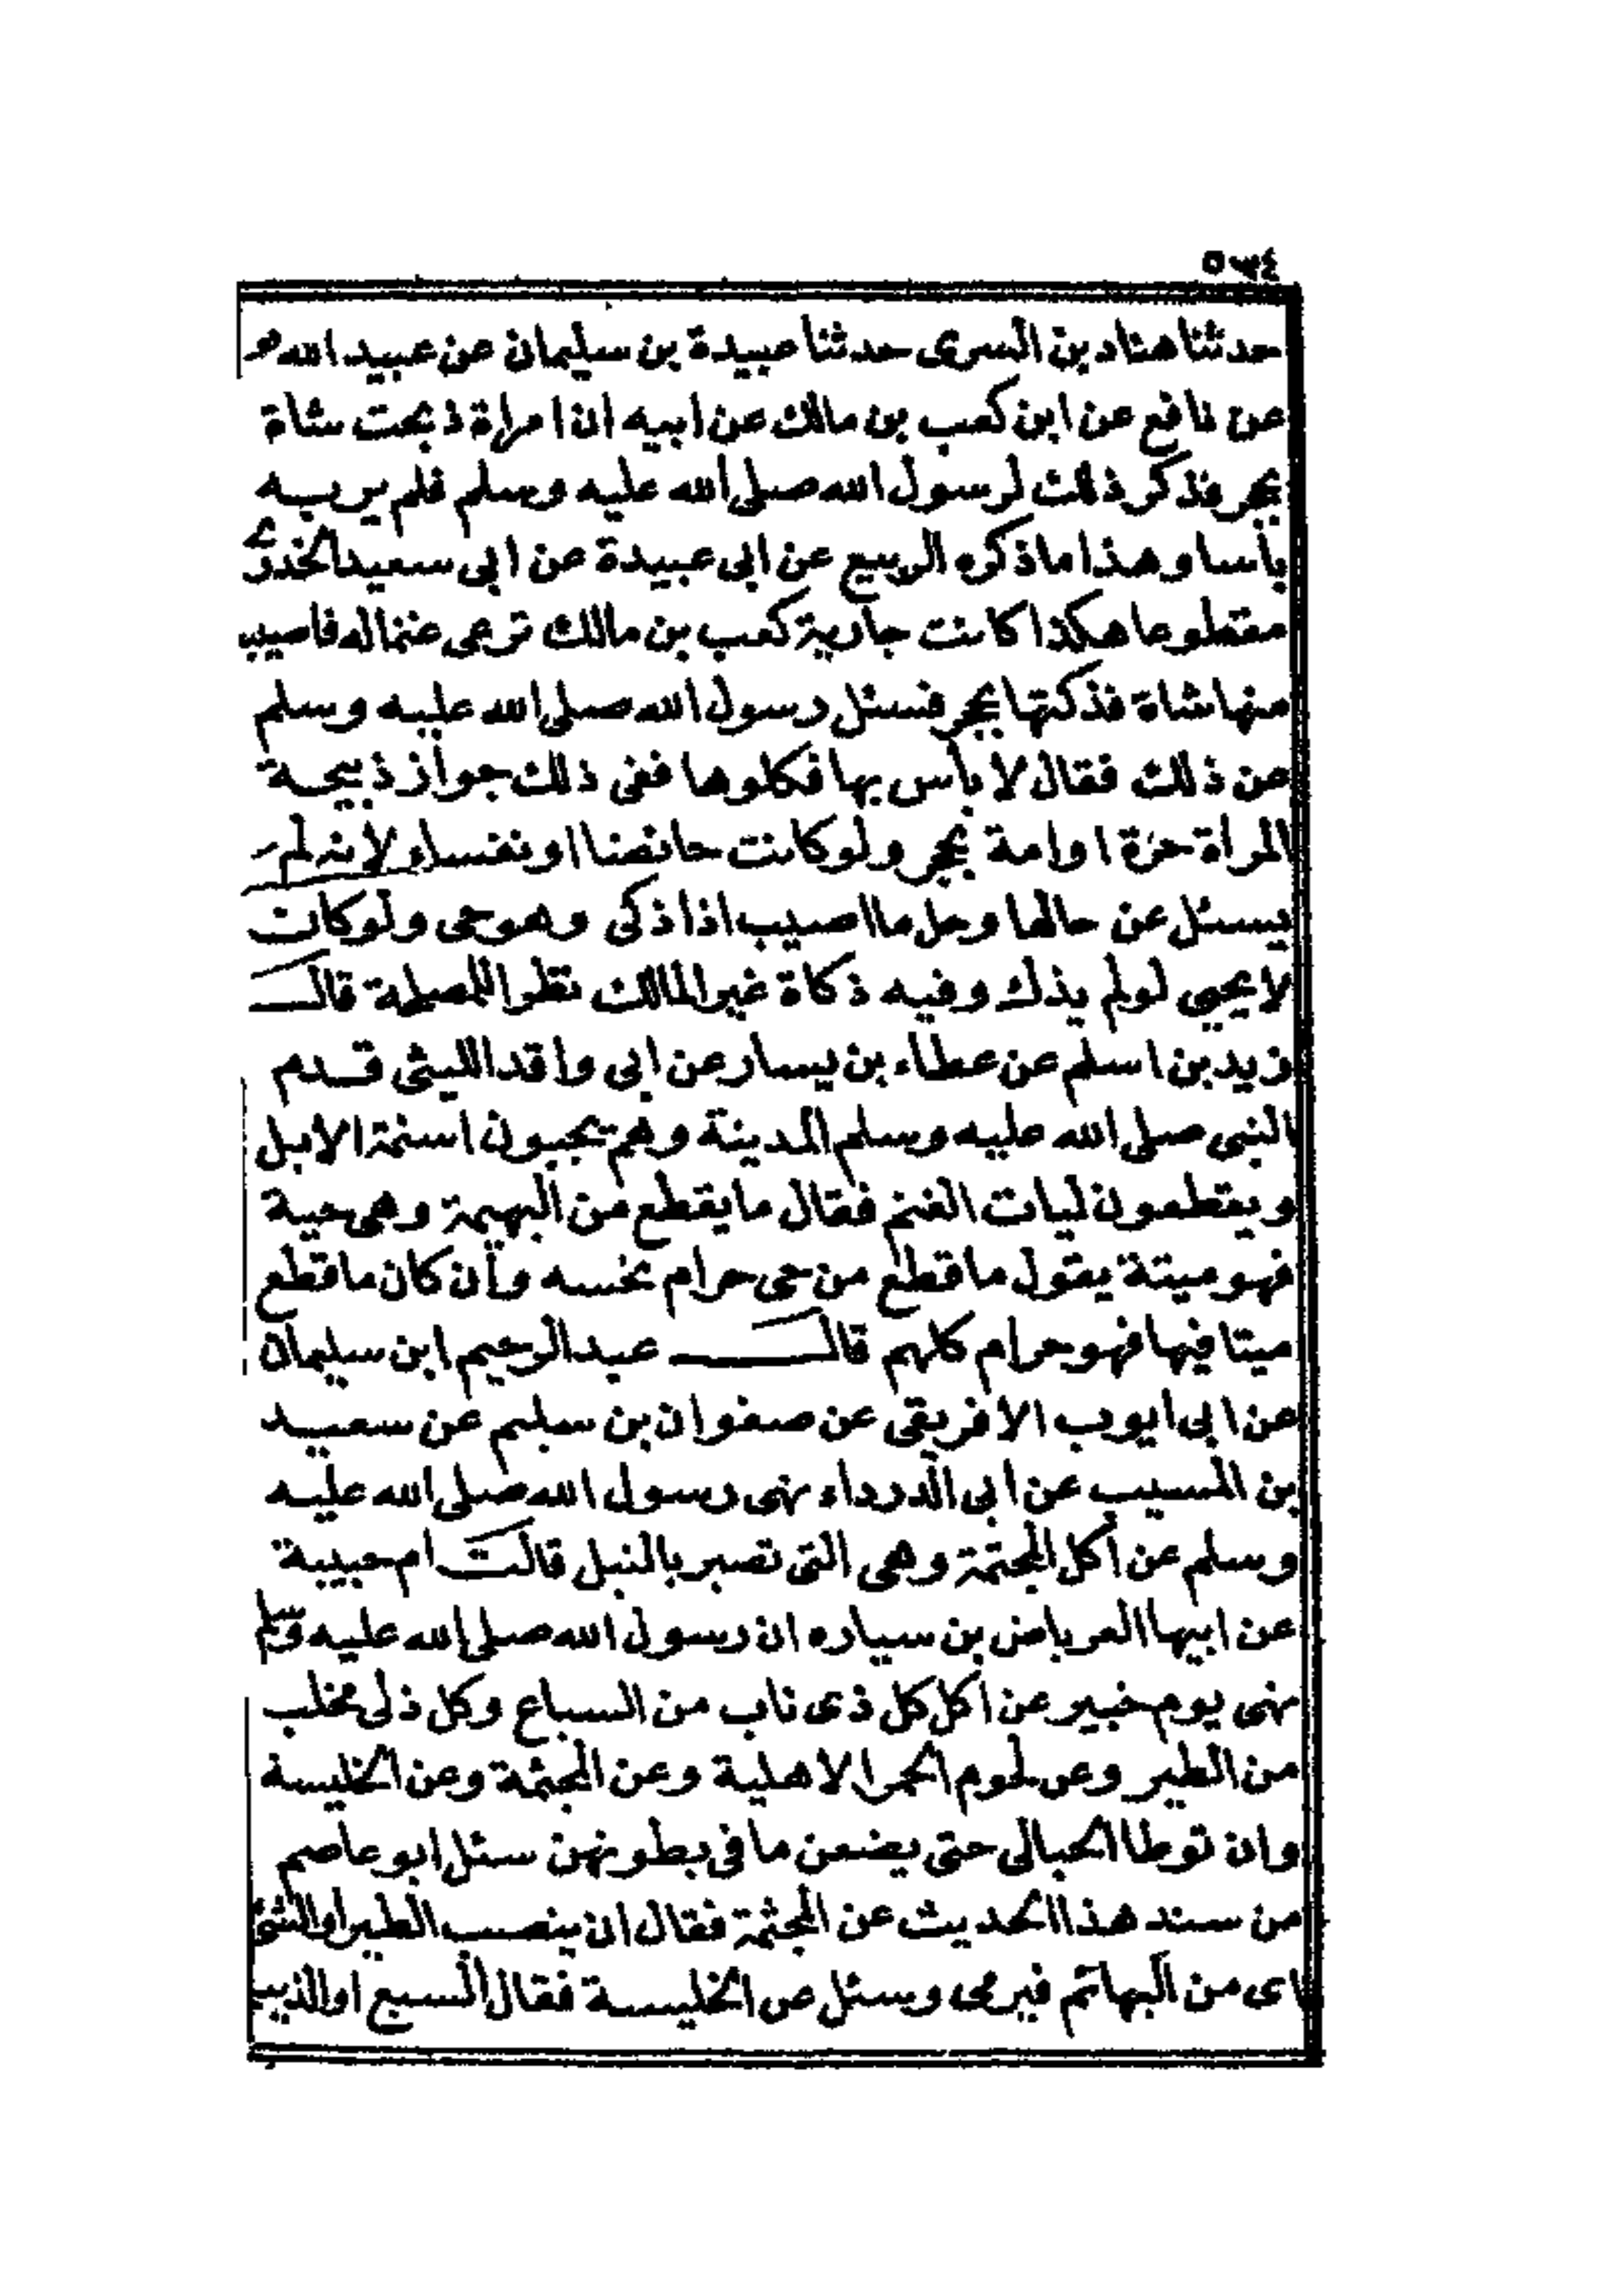 ٥٣٤
حدثنا هناد بن السرى حدثنا عبيدة بن سليمان عن عبيد الله هو
عن نافع عن ابن كعب بن مالك عن ابيه ان امراة ذبحت شاة
بحجر فذكر ذلك لرسول الله صلى الله عليه وسلم فلم ير به
بأسا وهذا ما ذكره الربيع عن ابى عبيدة عن ابى سعيد الخدرى
مقطوعا هكذا كانت جارية كعب بن مالك ترعى غنما له فاصيب
منها شاة فذكتها بحجر فسئل رسول الله صلى الله عليه وسلم
عن ذلك فقال لا بأس بها فكلوها ففى ذلك جواز ذبيحة
المراة حرة او امة بحجر ولو كانت حائضا او نفساء لانه لم
يسئل عن حالها وحل ما اصيب اذا ذكى وهو حى ولو كانت
لا يحيى لو لم يذك وفيه ذكاة غير المالك نظرا للمصلحة قال
زيد بن اسلم عن عطاء بن يسار عن ابى واقد الليثى قدم
النبى صلى الله عليه وسلم المدينة وهم يجبون اسنمة الابل
ويقطعون ليات الغنم فقال ما يقطع من البهيمة وهى حية
فهو ميتة يقول ما قطع من حى حرام نجسه وأن كان ما قطع
ميتا فيها فهو حرام كلهم قال عبد الرحيم ابن سليمان
عن ابى ايوب الافريقى عن صفوان بن سليم عن سعيد
بن المسيب عن ابى الدرداء نهى رسول الله صلى الله عليه
وسلم عن أكل المجثمة وهى التى تصبر بالنبل قالت ام حبيبة
عن ابيها العرباض بن سياره ان رسول الله صلى الله عليه وسلم
نهى يوم خيبر عن اكل كل ذى ناب من السباع وكل ذى مخلب
من الطير وعن لحوم الحمر الاهلية وعن المجثمة وعن الخليسة
وان توطا الحبالى حتى يضعن ما فى بطونهن سئل ابو عاصم
من سند هذا الحديث عن المجثمة فقال ان ينصب الطير او الشئ
اى من البهائم فيرمى وسئل عن الخليسة فقال السبع او الذيب